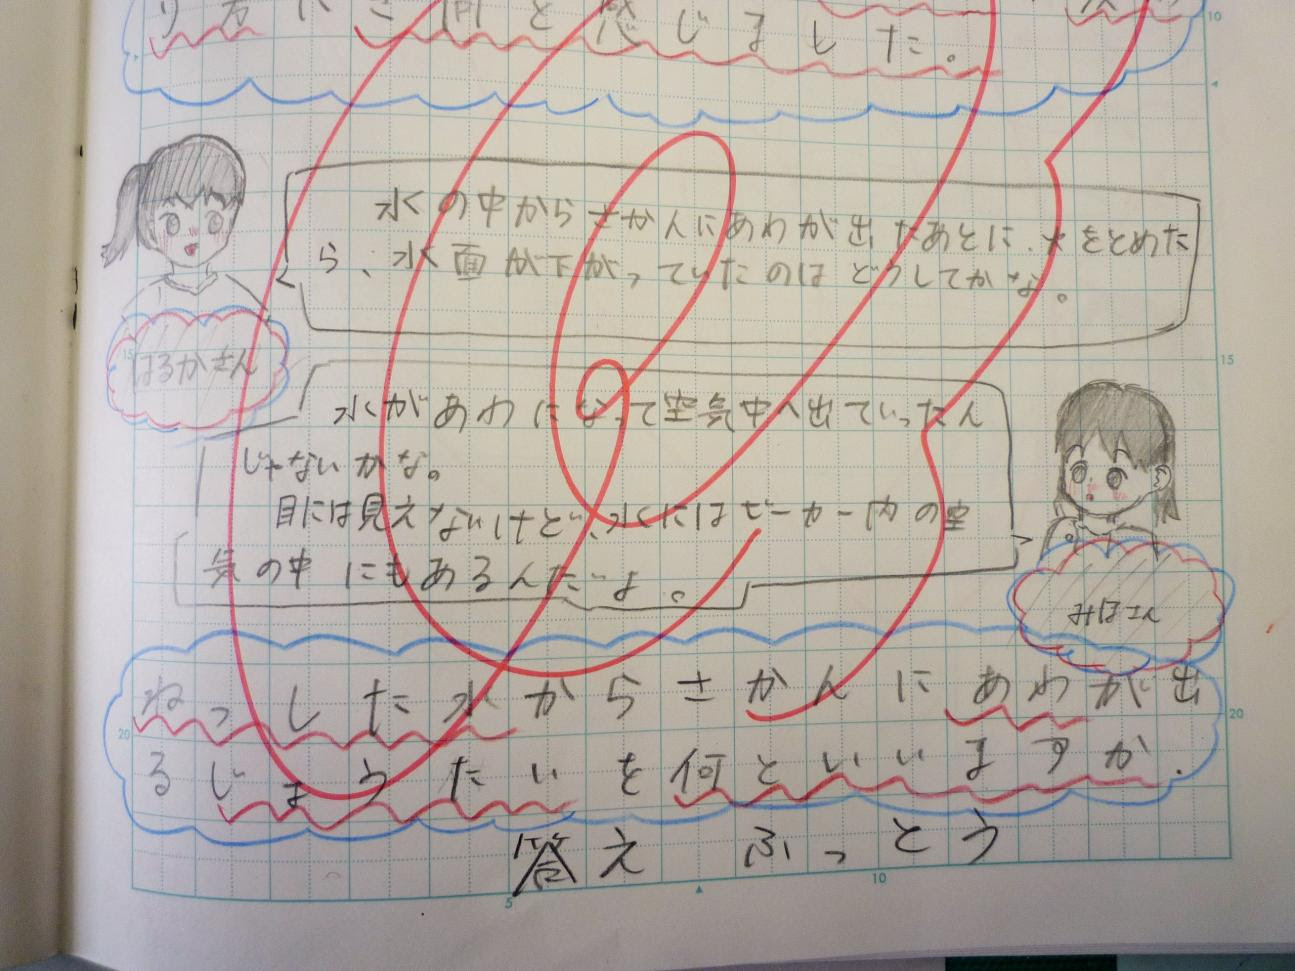 り方に　何と感じました。
10
水の中からさかんにあわが出たあとに、火をとめた
ら、水面が下がっていたのはどうしてかな。
はるかさん
15
15
水があわになって空気中へ出ていったん
じゃないかな。
目には見えないけど、水にはビーカー内の空
気の中にもあるんだよ。
みほさん
ねっした水からさかんにあわが出
20
20
るじょうたいを何といいますか.
答え ふっとう
5
10